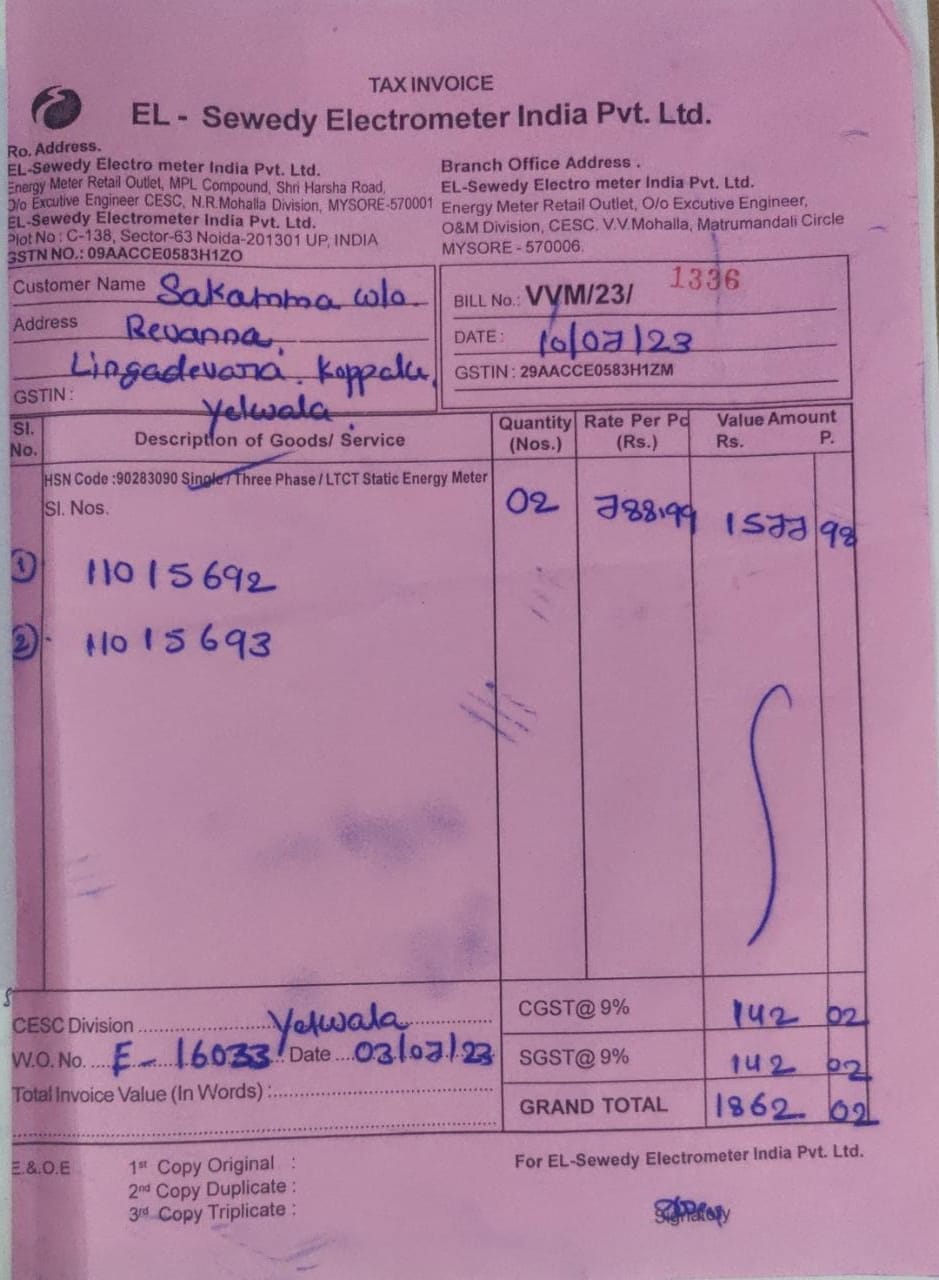 TAX INVOICE
EL - Sewedy Electrometer India Pvt. Ltd.
Ro. Address.
EL-Sewedy Electro meter India Pvt. Ltd.
Energy Meter Retail Outlet, MPL Compound, Shri Harsha Road,
O/o Excutive Engineer CESC, N.R.Mohalla Division, MYSORE-570001
EL-Sewedy Electrometer India Pvt. Ltd.
Plot No : C-138, Sector-63 Noida-201301 UP, INDIA
GSTN NO.: 09AACCE0583H1ZO
Branch Office Address .
EL-Sewedy Electro meter India Pvt. Ltd.
Energy Meter Retail Outlet, O/o Excutive Engineer,
O&M Division, CESC. V.V.Mohalla, Matrumandali Circle
MYSORE - 570006.
Customer Name Sakamma w/o
Address Revanna,
Lingadevara Koppalu,
GSTIN :
Yelwala
BILL No.: VVM/23/ 1336
DATE : 10/07/23
GSTIN : 29AACCE0583H1ZM
Sl. No. Description of Goods/ Service Quantity (Nos.) Rate Per Pc (Rs.) Value Amount Rs. P.
HSN Code :90283090 Single / Three Phase / LTCT Static Energy Meter
Sl. Nos. 02 788.99 1577 98
1 11015692
2 11015693
CESC Division Yelwala
W.O. No. E-16033 Date 03/07/23
Total Invoice Value (In Words) :
CGST@ 9% 142 02
SGST@ 9% 142 02
GRAND TOTAL 1862 02
E.&.O.E
1st Copy Original :
2nd Copy Duplicate :
3rd Copy Triplicate :
For EL-Sewedy Electrometer India Pvt. Ltd.
Signatory